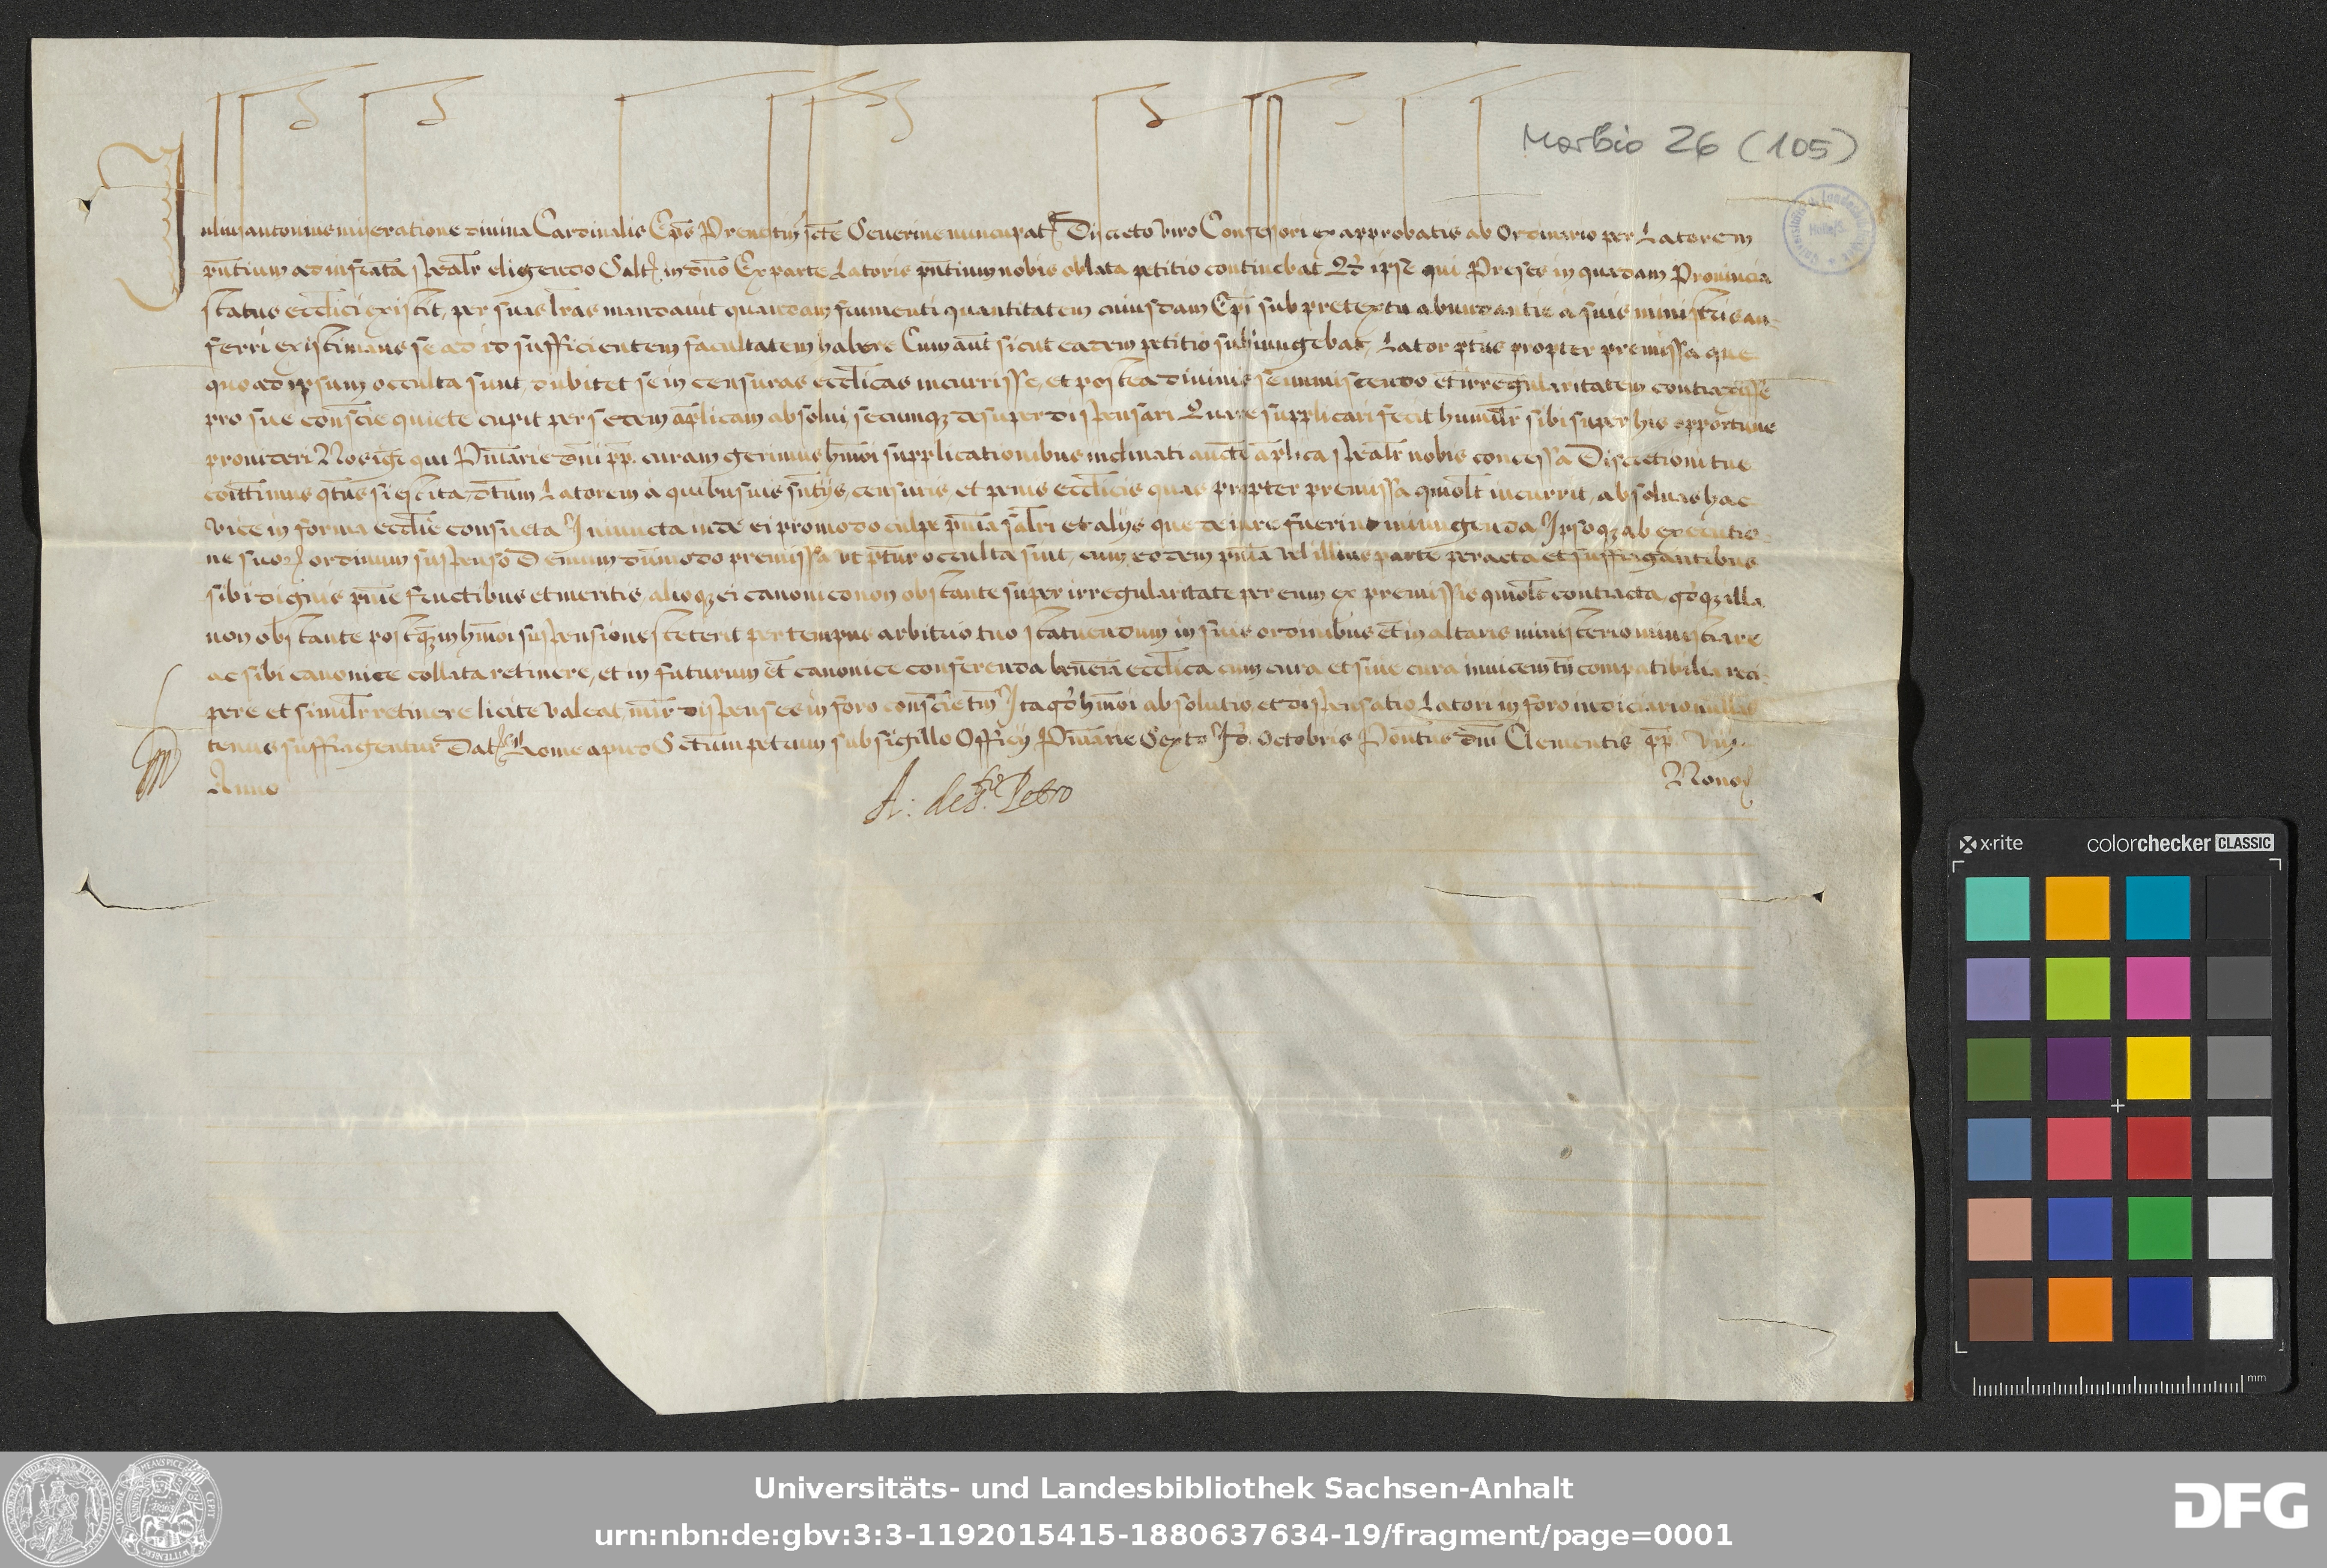 Morbio 26 (105)
Iulius antonius miseratione divina Cardinalis Ep̄s Prenestin̄ scte Severine nuncupat Discreto viro Confessori ex approbatis ab Ordinario per Latorem
pn̄tium ad infrāta sp̄ealr̄ eligendo Salt̄ in dn̄o Ex parte Latoris pn̄tium nobis oblata petitio continebat Qd̄ ipse qui Preses in quadam Provincia
status ecclīci existit, per suas lr̄as mandavit quandam frumenti quantitatem cuiusdam Ep̄i sub pretextu abundantie a suis ministris au-
ferri existimans se ad id sufficientem facultatem habere Cum aūt sicut eadem petitio subiungebat, Lator pt̄us propter premissa que
quo ad ipsum occulta sunt dubitet se in censuras ecclīcas incurrisse, et postea divinis se immiscendo et irregularitatem contraxisse
pro sue consc̄ie quiete cupit per sedem ap̄licam absolui, secumqz desuper dispensari Quare supplicari fecit humilr̄ sibi super his opportune
provideri Nos igr̄ qui Pn̄iarie dn̄i pp. curam gerimus hm̄oi supplicationibus inclinati auctē ap̄lica sp̄ealr̄ nobis concessa Discretioni tue
com̄ittimus qt̄us si est ita dc̄tum Latorem a quibusuis sn̄tijs, censuris et penis ecclīcis quas propter premissa qm̄olt incurrit, absoluas hac
vice in forma ecclīe consueta Iniuncta inde ei pro modo culpe pn̄ia salr̄i et alijs que de iure fuerint iniungenda Ipsoqz ab executio-
ne suoꝝ ordinum suspenso Demum dūmodo premissa ut pr̄tur occulta sint, cum eodem pn̄ia vel illius parte peracta et suffragantibus
sibi dignis pn̄ie fructibus et meritis, alioqz ei canonico non obstante super irregularitate per eum ex premissis qm̄olt contracta, qd̄qz illa
non obstante postqz in hm̄oi suspensione steterit per tempus arbitrio tuo statuendum in suis ordinibus et in altaris ministerio ministrare
ac sibi canonice collata retinere, et in futurum et canonice conferenda bn̄eia ecclīca cum cura et sine cura invicem tn̄ compatibilia reci-
pere et similr̄ retinere licite valeat, mir̄ dispenses in foro consc̄ie tm̄ Ita qd̄ hm̄oi absolutio et dispensatio Latori in foro iudiciario nulla-
tenus suffragentur Dat Rome apud Sctum petrum sub sigillo Officij Pn̄iarie Sexto Id. Octobris Pontus dn̄i Clementis pp. viij
Anno Nono
A: de S.to Petro
x-rite colorchecker CLASSIC
mm
Universitäts- und Landesbibliothek Sachsen-Anhalt
urn:nbn:de:gbv:3:3-1192015415-1880637634-19/fragment/page=0001
DFG